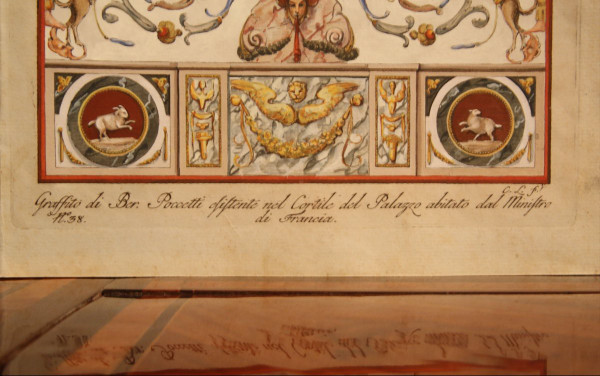 G. L. f.
Graffito di Ber. Poccetti esistente nel Cortile del Palazzo abitato dal Ministro
di Francia.
N.º 38.